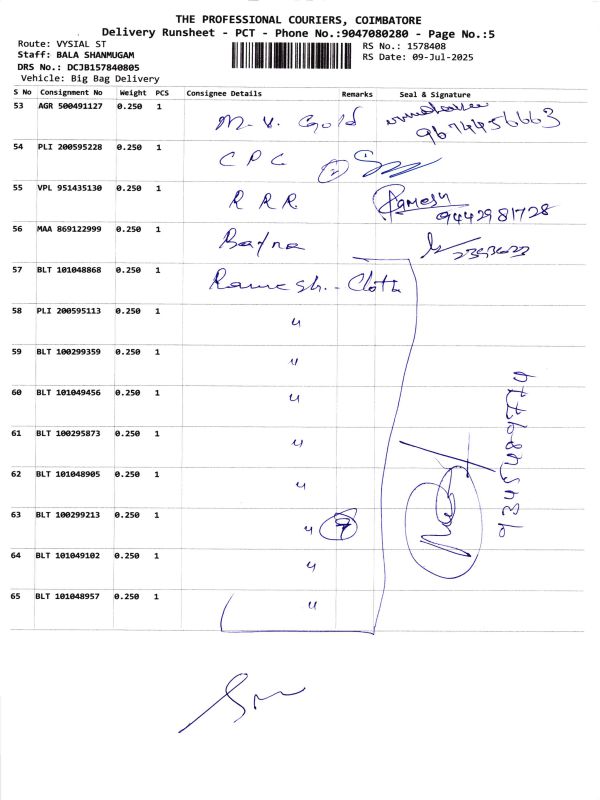 THE PROFESSIONAL COURIERS, COIMBATORE
Delivery Runsheet - PCT - Phone No.:9047080280 - Page No.:5
Route: VYSIAL ST
RS No.: 1578408
Staff: BALA SHANMUGAM
RS Date: 09-Jul-2025
DRS No.: DCJB157840805
Vehicle: Big Bag Delivery
S No Consignment No Weight PCS Consignee Details Remarks Seal & Signature
53 AGR 500491127 0.250 1 M. V. Gold 9674456663
54 PLI 200595228 0.250 1 C P C 2
55 VPL 951435130 0.250 1 R R R Ramesh 9442981728
56 MAA 869122999 0.250 1 Bafna
57 BLT 101048868 0.250 1 Ramesh. - Cloth
58 PLI 200595113 0.250 1 "
59 BLT 100299359 0.250 1 "
60 BLT 101049456 0.250 1 "
61 BLT 100295873 0.250 1 "
62 BLT 101048905 0.250 1 "
63 BLT 100299213 0.250 1 "
64 BLT 101049102 0.250 1 "
65 BLT 101048957 0.250 1 "